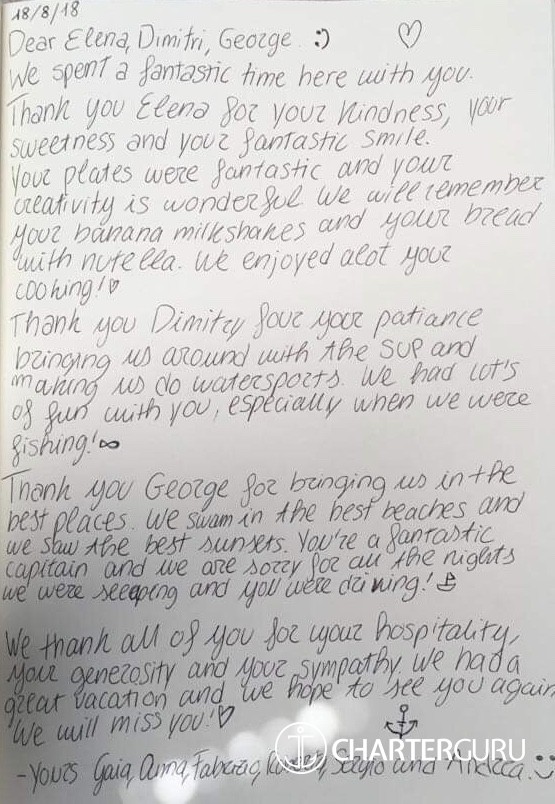 18/8/18
Dear Elena, Dimitri, George :) ♡
We spent a fantastic time here with you.
Thank you Elena for your kindness, your
sweetness and your fantastic smile.
Your plates were fantastic and your
creativity is wonderful. We will remember
your banana milkshakes and your bread
with nutella. We enjoyed alot your
cooking! ♡
Thank you Dimitry four your patiance
bringing us around with the SUP and
making us do watersports. We had lot's
of fun with you, especially when we were
fishing! ∞
Thank you George for bringing us in the
best places. We swam in the best beaches and
we saw the best sunsets. You're a fantastic
capitain and we are sorry for all the nights
we were seeeping and you were driving!
We thank all of you for your hospitality,
your generosity and your sympathy. We had a
great vacation and we hope to see you again
We will miss you! ♡
CHARTERGURU
-Yours Gaia, Anna, Fabrizio, Sergio and Andrea. :)